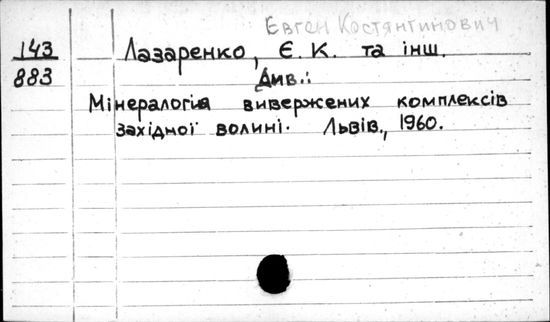 Евген Костянтинович
143 Лазаренко, Є. К. та інш.
883 Див.:
Мінералогія вивержених комплексів
західної волині. Львів., 1960.